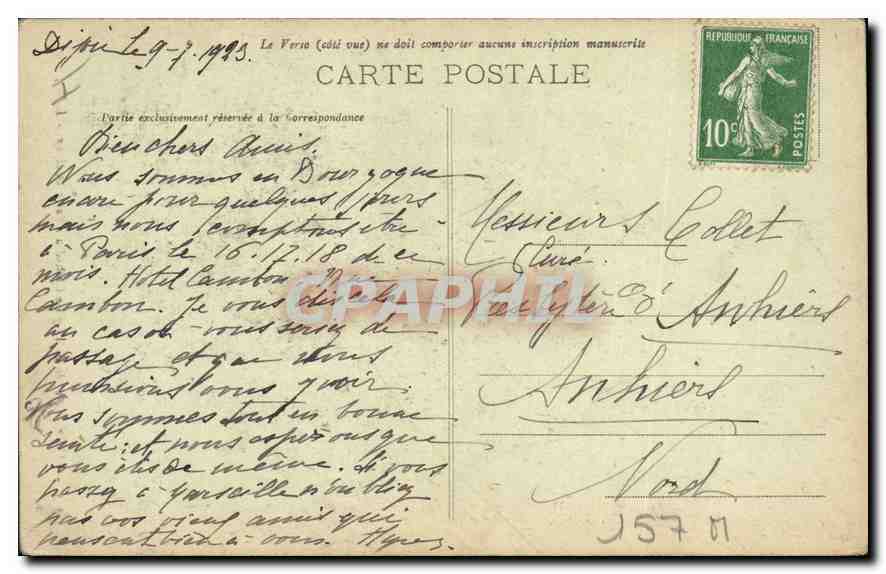 Dijon le 9-7-1923.
Le Verso (côté vue) ne doit comporter aucune inscription manuscrite
CARTE POSTALE
REPUBLIQUE FRANÇAISE
10c
POSTES
Partie exclusivement réservée à la Correspondance
Bien chers Amis.
Nous sommes en Bourgogne
encore pour quelques jours
mais nous comptons être
à Paris le 16.17.18 de ce
mois. Hotel Cambon Rue
Cambon. Je vous dis cela
au cas où vous seriez de
passage et que nous
puissions vous y voir.
Nous sommes tout en bonne
santé; et nous esperons que
vous êtes de même. Si vous
passez à Marseille n'oubliez
pas vos vieux amis qui
pensent bien à vous.
Messieurs Collet
Curé
Presbytère d'Anhiers
Anhiers
Nord
157 M
CPAPHIL